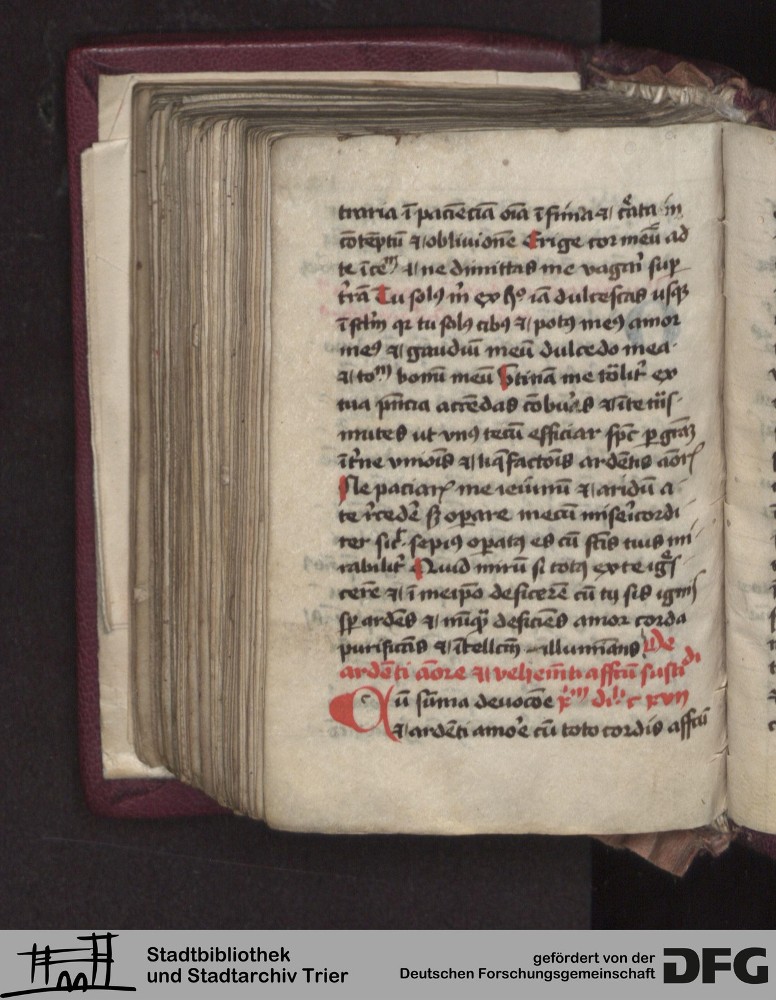 traria ī paciēciā oīa īfima ⁊ c̄ata in
cōtēptū ⁊ obliuionē Erige cor meū ad
te ī ce ⁊ ne dimittas me vagari sup
t̄rā Tu solꝰ m̄ ex hͦ iā dulcescas usqꝫ
ī sclm̄ qr tu solꝰ cibꝰ ⁊ potꝰ meꝰ amor
meꝰ ⁊ gaudiū meū dulcedo mea
⁊ totū bonū meū Utinā me totalit̄ ex
tua pn̄cia accēdas cōburas ⁊ ī te trās
mutes ut vnꝰ tecū efficiar spc̄ p grāꝫ
īt̄ne vniois ⁊ liq̄factois ardētis aōr
Ne paciaris me ieiunū ⁊ aridū a
te r̄cedere sꝫ operare mecū misericordi
ter sic sepiꝰ opatꝰ es cū sc̄is tuis mi
rabilit̄ Quid mirū si totꝰ ex te igs
cerē ⁊ ī meipo deficerē cū tu sis ignis
sp ardēs ⁊ nūq̄ deficiēs amor corda
purificās ⁊ ītellcm̄ illuminans De
ardēti aōre ⁊ vehemēti affcū susci di
Cū sūma deuocōe xm di c xvii
⁊ ardēti amoꝛe cū toto cordis affcū
Stadtbibliothek
und Stadtarchiv Trier
gefördert von der
Deutschen Forschungsgemeinschaft
DFG